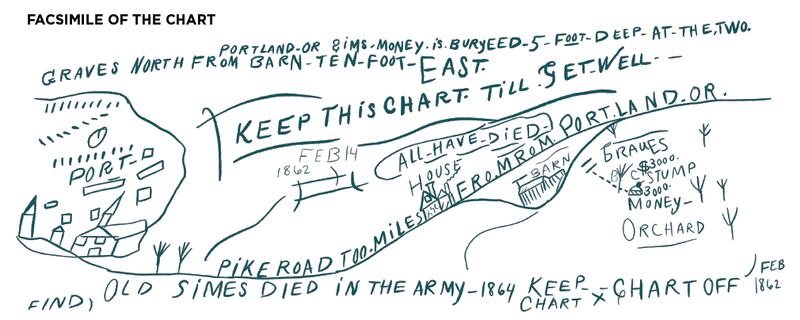 FACSIMILE OF THE CHART
PORTLAND-OR SiMS-MONEY.iS.BURYEED-5-FOOT-DEEP-AT-THE,TWO.
GRAVES NORTH FROM BARN-TEN-FOOT-EAST.
KEEP THiS CHART. TiLL. I GET. WELL.--
ALL-HAVE-DIED-
FEB 14
1862
PORT-
HOUSE
BARN
PiKE ROAD TOO.MiLES FROM PORT.LAND.OR.
GRAVES
$3000-
STUMP
$3000-
MONEY-
ORCHARD
FIND, OLD SIMES DIED IN THE ARMY-1864 KEEP CHART X-CHART OFF
FEB
1862